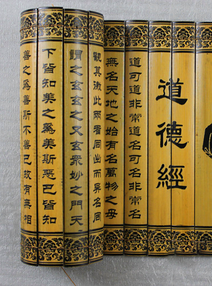 道德經
道可道非常道名可名非常名
無名天地之始有名萬物之母
觀其徼此兩者同出而異名同
謂之玄玄之又玄眾妙之門天
下皆知美之爲美斯惡已皆知
善之爲善斯不善已故有無相